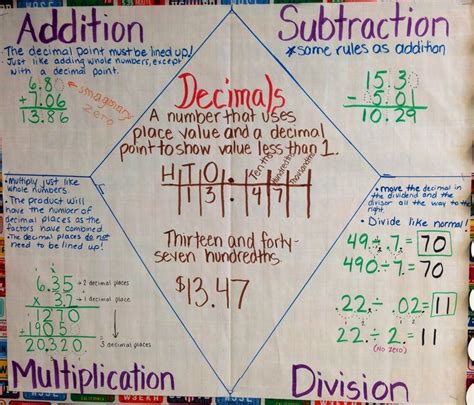 Addition
• The decimal point must be lined up!
Just like adding whole numbers, except
with a decimal point.
6.80
+7.06
13.86
imaginary
zero
Subtraction
*some rules as addition
15.30
- 5.01
10.29
Decimals
A number that uses
place value and a decimal
point to show value less than 1.
H T O . Tenths Hundredths Thousandths
1 3 . 4 7
Thirteen and forty-
seven hundredths
$13.47
• Multiply just like
whole numbers.
• The product will
have the number of
decimal places as the
factors have combined.
• The decimal places do not
need to be lined up!
6.35 → 2 decimal places
x 3.2 → 1 decimal place
1270
+19050
20.320 3 decimal places
Multiplication
• move the decimal in
the dividend and the
divisor all the way to the
right.
• Divide like normal!
49.÷.7.= 70
490.÷7= 70
.22.÷ .02.= 11
22.÷ 2. = 11
(No Zero)
Division